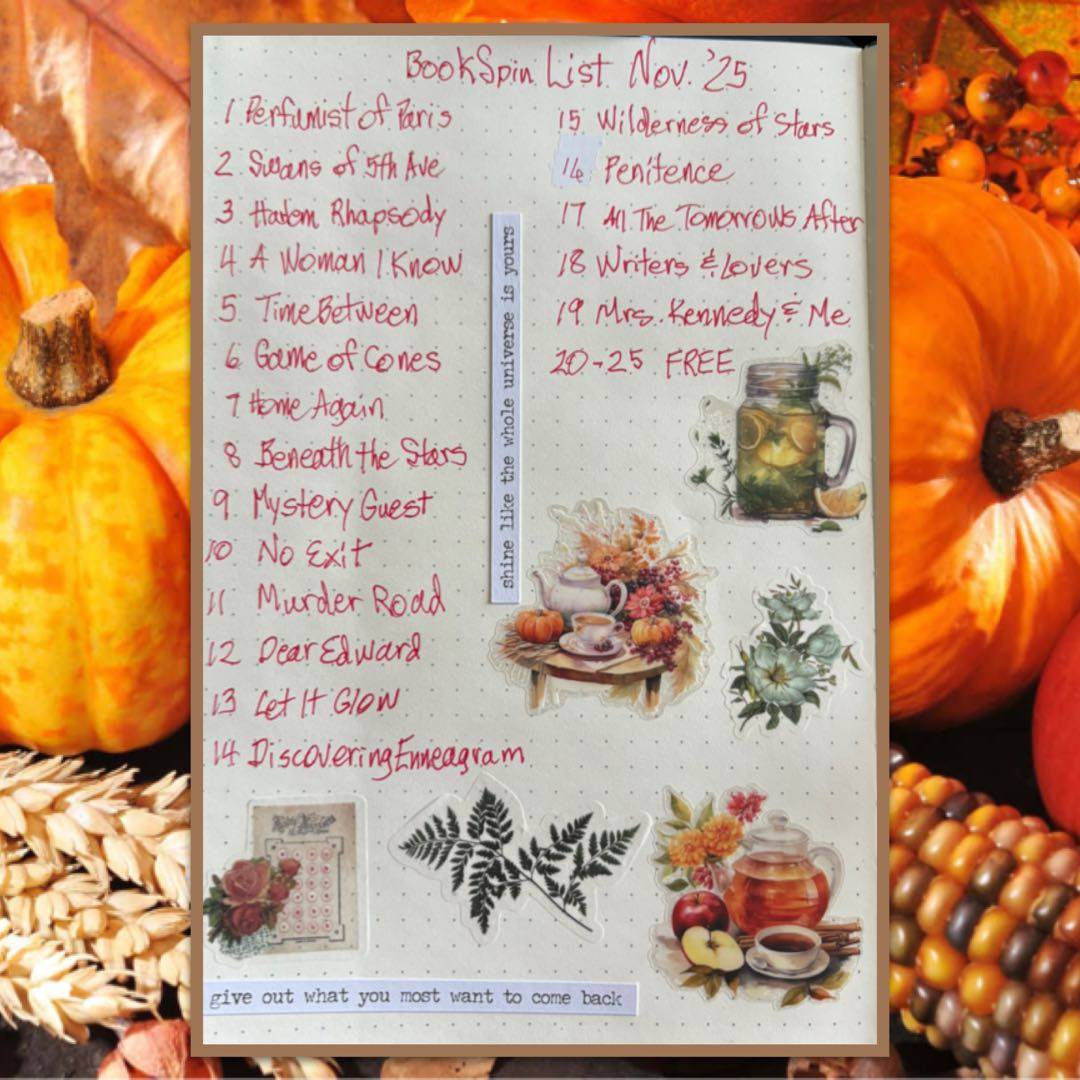 BookSpin List Nov. '25
1 Perfumist of Paris
2 Swans of 5th Ave
3 Harlem Rhapsody
4 A Woman I Know
5 Time Between
6 Game of Cones
7 Home Again
8 Beneath the Stars
9 Mystery Guest
10 No Exit
11 Murder Road
12 Dear Edward
13 Let It Glow
14 Discovering Enneagram
15 Wilderness of Stars
16 Penitence
17 All The Tomorrows After
18 Writers & Lovers
19 Mrs. Kennedy & Me
20-25 FREE
shine like the whole universe is yours
give out what you most want to come back